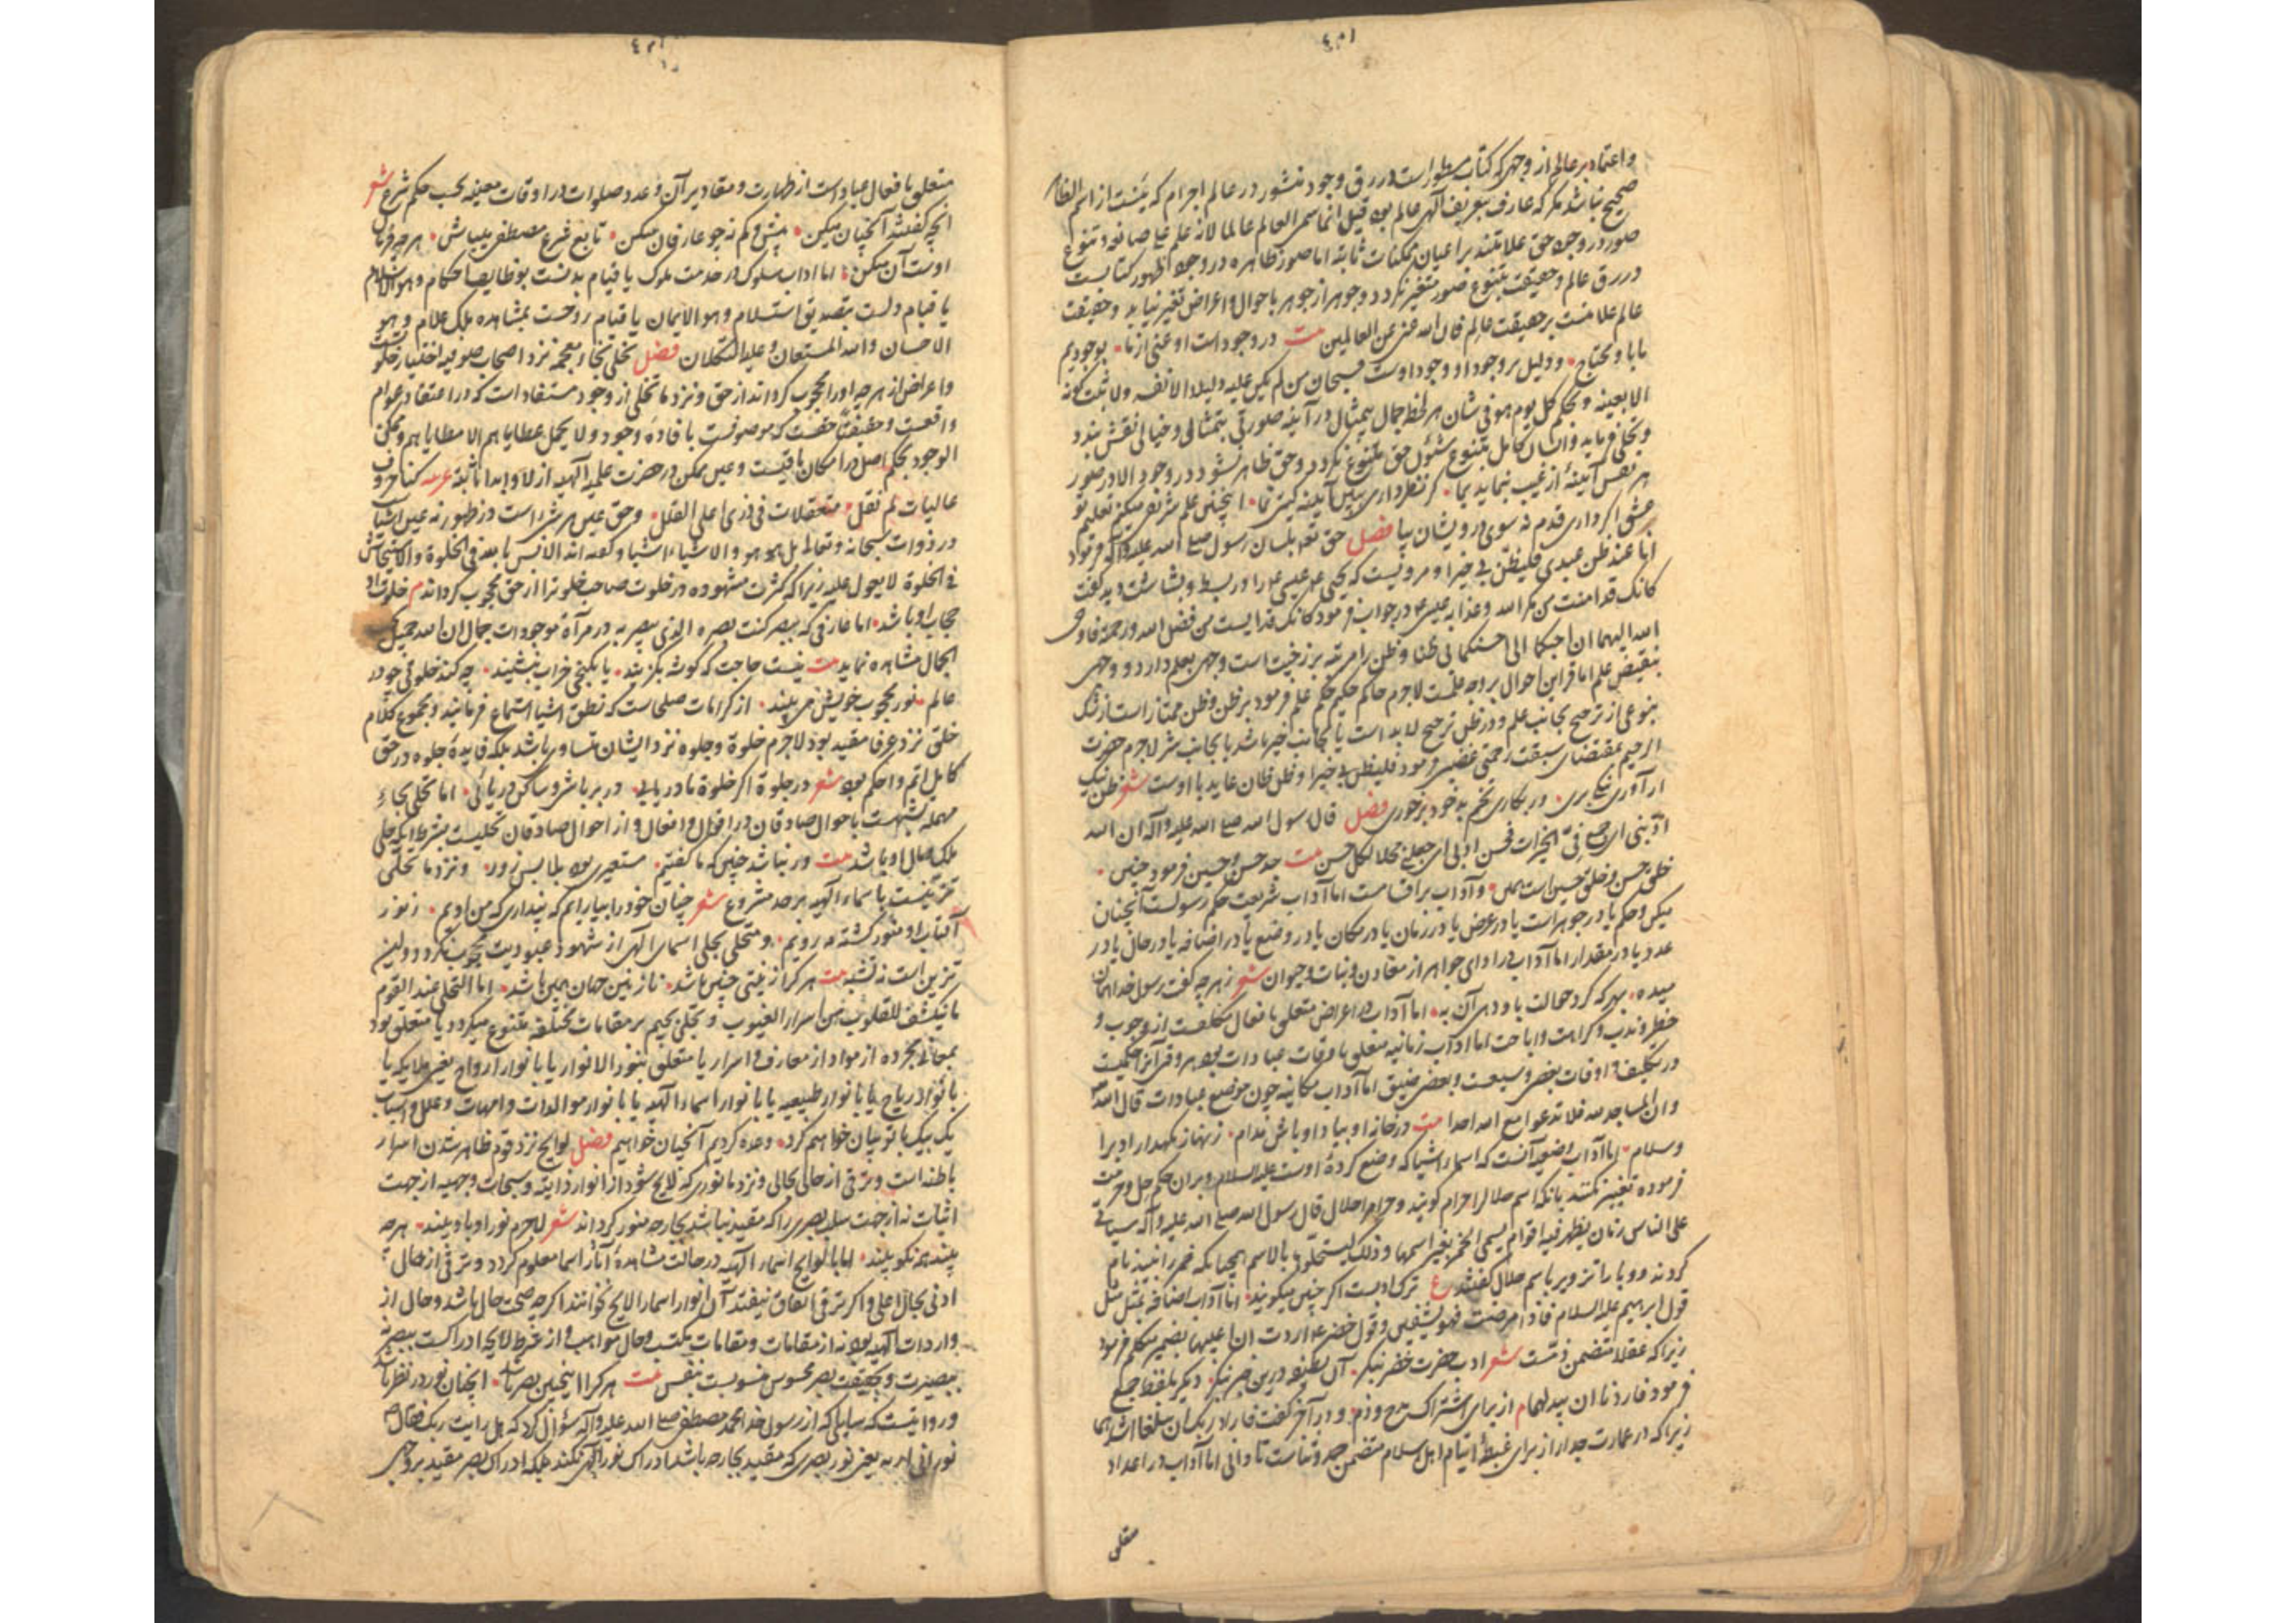 واعتماد بر عالم از وجهی که کتاب مسطور است در رق وجود منشور در عالم اجرام که بینست از اسم الظاهر
صحیح نباشد مگر که عارف بتعریف الهی عالم بود قیل انما سمی العالم عالما لانه علم علی صانعه و تنوع
صور در وجود حق علامتند بر اعیان ممکنات ثابته اما صور ظاهره در وجود اظهور کتابست
در رق عالم و حقیقت بتنوع صور متغیر نگردد و جوهر از جوهر باحوال و اعراض تغیر نیابد و حقیقت
عالم علامتست بر حقیقت عالم قال الله غنی عن العالمین بیت در وجود است او غنی از ما بوجودیم
مابا و محتاج و دلیل بر وجود او وجود اوست فسبحان من لم یکن علیه دلیلا الا نفسه ولا ثبت کونه
الا بعینه و بحکم کل یوم هو فی شان هر لحظه جمال بیمثال در آینه صورتی بتمثالی و خیالی نقش بندد
و تجلی فرماید و انسان کامل بتنوع شئون حق متنوع گردد و حق ظاهر نشود در وجود الا در صور
هر نفس آیینه از غیب نماید بما گر نظر داری ببین آیینه گیتی نما اینچنین علم شریفی میکنم تعلیم تو
عشق اگر داری قدم نه سوی درویشان بیا فصل حق تعالی بلسان رسول صلی الله علیه وآله فرمود
انا عند ظن عبدی فلیظن بی خیرا و مرویست که یحیی عم عیسی عم را در بسط و بشاشت دید گفت
کانک قد امنت من مکر الله و عذابه عیسی عم در جواب فرمود کانک قد ایست من فضل الله و رحمته فاوحی
الله الیهما ان احبکما الی احسنکما بی ظنا و ظن را مرتبه برزخیت است وجهی بعلم دارد و وجهی
بنقیض علم اما قراین احوال بر وجه علمست لاجرم حاکم حکیم حکم علم فرمود بر ظن و ظن ممتاز است از شک
بنوعی از ترجیح بجانب علم و در ظن ترجیح لابد است یا بجانب خیر باشد یا بجانب شر لاجرم حضرت
الرحیم بمقتضای سبقت رحمتی غضبی فرمود فلیظن بی خیرا و ظن ظان عاید با اوست شعر ظن نیک
ار آوری نیکی بری ور بکاری تخم بد خود برخوری فصل قال رسول الله صلی الله علیه وآله ان الله
ادبنی ای جمع فی الخیرات فحسن ادبی ای جعلنی محلا لکل حسن بیت جد حسن و حسین فرمود چنین
خلق حسن و خلق حسین است همین و آداب بر اقسامست اما آداب شریعت حکم رسولست آنچنان
میکن و حکم یا در جوهر است یا در عرض یا در زمان یا در مکان یا در وضع یا در اضافه یا در حال یا در
عدد یا در مقدار اما آداب در ادای جواهر از معادن و نبات و حیوان شعر ز هر چه گفت رسول خدا همان
میده بهر که کرد حوالت باو دهی آن به اما آداب در اعراض متعلق بافعال مکلفست از وجوب و
حظر و ندب و کراهت و اباحت اما آداب زمانیه متعلق باوقات عبادات بود
در تکلیف و اوقات بعضی وسیعست و بعضی ضیق اما آداب مکانیه چون موضع عبادات قال الله
وان المساجد لله فلا تدعوا مع الله احدا بیت در خانه او بیاد او باش مدام زنهار نگهدار ادب را
وسلام اما آداب وضعیه آنست که اسماء اشیا که وضع کرده اوست علیه السلام و بر آن حکم حل و حرمت
فرموده تغییر نکنند بانکه اسم حلال را حرام گویند و حرام را حلال قال رسول الله صلی الله علیه وآله سیاتی
علی الناس زمان یظهر فیه اقوام یسمی الخمر بغیر اسمها و ذلک لیستحلونها بالاسم همچنانکه خمر را نبیذ نام
کردند و ربا را تزویر باسم حلال گفتند ع ترک ادبست اگر چنین میگویند اما آداب اضافه بمثل مثل
قول ابرهیم علیه السلام فاذا مرضت فهو یشفین و قول خضر عم اردت ان اعیبها بضمیر متکلم فرمود
زیرا که عقلا متضمن ذمست شعر ادب حضرت خضر بنگر آن بصر نه درین نگر دیگر بلفظ جمع
فرمود فاردنا ان یبدلهما از برای اشتراک مدح و ذم و در آخر گفت فاراد ربک ان یبلغا اشدهما
زیرا که در عمارت جدار از برای غبطه ایتام اهل اسلام متضمن حمد و ثناست تا دانی اما آداب در اعداد
متعلق
متعلق بافعال عباداتست از طهارت و مقادیر آن و عدد صلوات در اوقات معینه بحسب حکم شرع شعر
آنچه گفتند آنچنان میکن بیش و کم نه چو عارفان میکن تابع شرع مصطفی میباش هر چه فرمان
اوست آن میکن اما آداب سلوک در خدمت ملوک یا قیام بدنست بوظایف احکام و هو الاسلام
یا قیام دلست بتصدیق استسلام و هو الایمان یا قیام روحست بمشاهده ملک علام و هو
الاحسان والله المستعان وعلیه التکلان فصل تخلی بخاء معجمه نزد اصحاب صوفیه اختیار خلوتست
و اعراض از هر چه او را محجوب گرداند از حق و نزد ما تخلی از وجود مستفاد است که در اعتقاد عوام
واقعست و حقیقتا حقست که موصوفست بافاده وجود و لا یحمل عطایاهم الا مطایاهم و ممکن
الوجود بحکم اصل در امکان باقیست و عین ممکن در حضرت علمیه الهیه ازلا و ابدا ثابته عربیه کنا حروف
عالیات لم نقل متعلقات فی ذری اعلی القلل و حق عین هر شیء است در ظهور نه عین اشیا
در ذوات سبحانه و تعالی بل هو هو والاشیاء اشیا
فی الخلوة لا یعول علیه زیرا که کثرت مشهوده در خلوت صاحب خلوت را از حق محجوب گرداند م خلوت او
حجاب او باشد اما عارفی که ببصر کنت بصره الذی یبصر به در مرآة موجودات جمال ان الله جمیل یحب
الجمال مشاهده نماید بیت نیست حاجت که گوشه بگزیند یا بکنجی خراب بنشیند چه کند خلوتی چو در
عالم نور محبوب خویش می بیند از کرامات صلحاست که نطق اشیا استماع فرمایند و مجموع کلام
خلق نزد عرفا مقید بود لاجرم خلوة و جلوه نزد ایشان متساوی باشد بلکه فایده جلوه در حق
کامل اتم و احکم بود شعر در جلوة اگر خلوة ما دریابی در بر باشی و ساکن دریائی اما تحلی بحاء
مهمله تشبهست باحوال صادقان در اقوال و افعال و از احوال صادقان تحلیست بشرط آنکه حلی
ملک حال او باشد بیت ور نباشد چنین که ما گفتیم مستعیری بود بلابس زور و نزد ما تحلی
تزینست باسماء الهیه بر حد مشروع شعر چنان خود را بیارایم که پنداری که من اویم ز نور
آفتاب او منور گشته مه رویم و متحلی بحلی اسمای الهی از شهود عبودیت محجوب نگردد و لین
تزین است نه تشبه بیت هر کرا زینتی چنین باشد نازنین جهان همین باشد اما التجلی عند القوم
ما ینکشف للقلوب من اسرار الغیوب و تجلی بحیم بر مقامات مختلفه متنوع میگردد یا متعلق بود
بمعانی مجرده از مواد از معارف و اسرار یا متعلق بنور الانوار یا بانوار ارواح یعنی ملایکه یا
بانوار ریاح یا بانوار طبیعیه یا بانوار اسماء الهیه یا بانوار موالدات و امهات و علل و اسباب
یک بیک با تو بیان خواهم کرد وعده کردیم آنچنان خواهیم فصل لوایح نزد قوم ظاهر شدن اسرار
باطنه است و ترقی از حالی بحالی و نزد ما نوری که لایح شود از انوار ذاتیه و سبحات وجهیه از جهت
اثبات نه از جهت سلب بصری را که مقید نباشد بجارحه منور گرداند شعر لاجرم نور او باو بیند هر چه
بیند همه نکو بیند اما لوایح اسماء الهیه در حالت مشاهده آثار اسما معلوم گردد و ترقی از حال
ادنی بحال اعلی و اگر ترقی اتفاق نیفتد آن انوار اسما را لایح نخوانند اگر چه صحت حال باشد و حال از
واردات الهیه بود نه از مقامات و مقامات مکتسب و حال مواهب و از شرط لایحه ادراکست ببصر نه
ببصیرت و بحقیقت بصر محسوس منسوبست بنفس بیت هر کرا اینچنین بصر باشد آنچنان نور در نظر باشد
و روا نیست که سایلی که از رسول خدا محمد مصطفی صلی الله علیه وآله سؤال کرد که هل رایت ربک فقال ص
نور انی اراه یعنی نور بصری که مقید بجارحه باشد ادراک نور الهی نکند بلکه ادراک بصر مقید بر وجهی